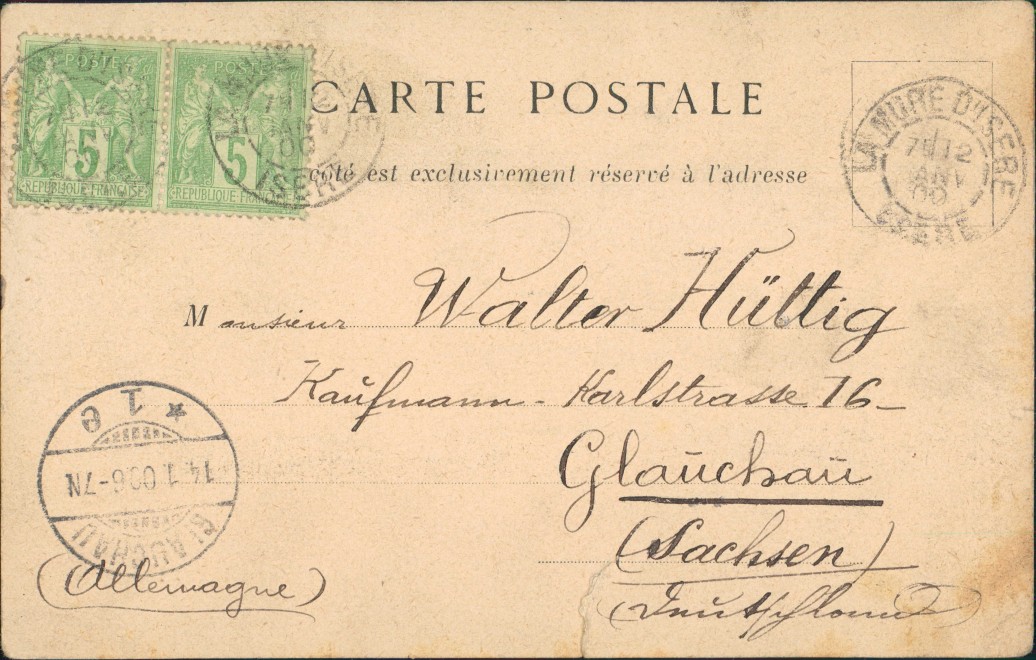 POSTE POSTE
5 5
REPUBLIQUE FRANÇAISE REPUBLIQUE FRAN
ISERE
CARTE POSTALE
côté est exclusivement réservé à l'adresse
LA MURE D'ISERE
7E 12
JANV
00
ISERE
Monsieur Walter Hüttig
Kaufmann - Karlstrasse 16 -
Glauchau
(Sachsen)
(Deutschland)
GLAUCHAU
14.1.00 6-7N
* 1 e
(Allemagne)